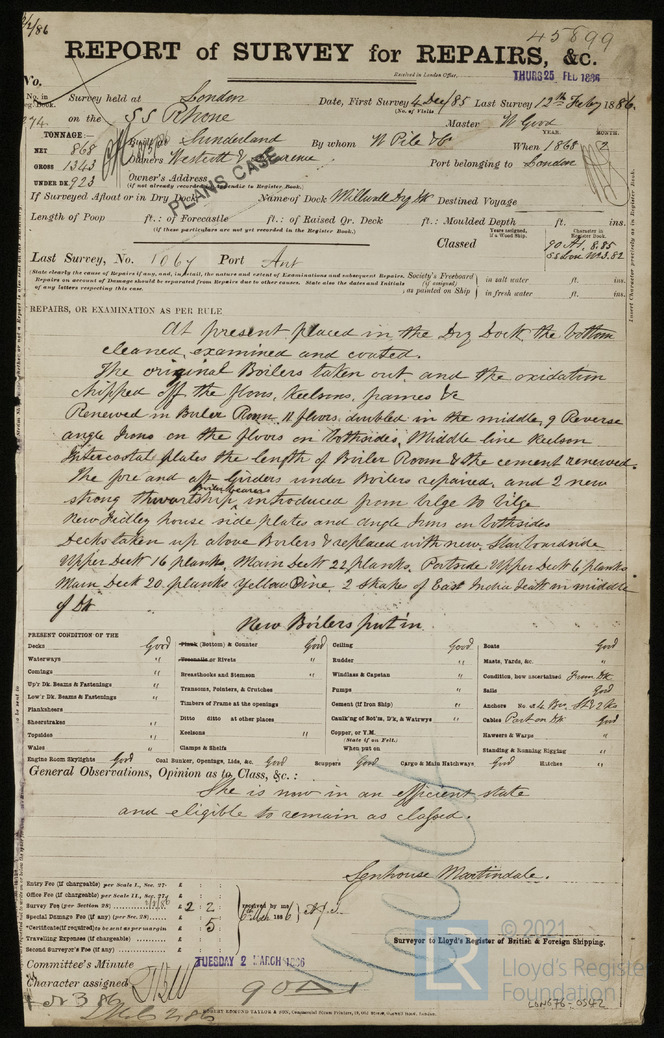 2/86
45899
REPORT of SURVEY for REPAIRS, &c.
Received in London Office, THURS 25 FEB 1886
No.
No. in Reg. Book.
Survey held at London Date, First Survey 4 Dec/85 Last Survey 12th Feby 1886.
(No. of Visits)
274. on the SS Rhone Master W Good
TONNAGE:— Built at Sunderland By whom W Pile & Co When 1868 2
YEAR. MONTH.
NET 868
GROSS 1343 Owners Westcott & Laurence Port belonging to London
UNDER DK. 923 Owner's Address
(if not already recorded in Appendix to Register Book.)
PLANS CASE
If Surveyed Afloat or in Dry Dock Name of Dock Millwall Dry Dk Destined Voyage
Length of Poop ft.: of Forecastle ft.: of Raised Qr. Deck ft.: Moulded Depth ft. ins.
(If these particulars are not yet recorded in the Register Book.)
Classed
Years assigned, if a Wood Ship.
Character in Register Book.
90 A1. 8.85
SS Lon No 3. 82
Last Survey, No. 1067 Port Ant
(State clearly the cause of Repairs if any, and, in detail, the nature and extent of Examinations and subsequent Repairs. Repairs on account of Damage should be separated from Repairs due to other causes. State also the dates and Initials of any letters respecting this case.
Society's Freeboard (if assigned) as painted on Ship
in salt water ft. ins.
in fresh water ft. ins.
Insert Character precisely as in Register Book.
REPAIRS, OR EXAMINATION AS PER RULE
At present placed in the Dry Dock, the bottom
cleaned, examined and coated.
The original Boilers taken out and the oxidation
chipped off the floors, keelsons, frames &c
Renewed in Boiler Room, 11 floors, doubled in the middle, 9 Reverse
angle Irons on the floors on bothsides, Middle line keelson
Intercostal plates the length of Boiler Room & the cement renewed.
The fore and aft Girders under Boilers repaired, and 2 new
strong thwartship Boiler bearers introduced from bilge to bilge
New Fidley house side plates and angle Irons on bothsides
Decks taken up above Boilers & replaced with new, Starboardside
Upper Deck 16 planks, Main Deck 22 planks, Portside Upper Deck 6 planks
Main Deck 20 planks Yellow Pine, 2 Strakes of East India Teak in middle
of Dk
New Boilers put in
PRESENT CONDITION OF THE
Decks Good
Waterways "
Comings "
Up'r Dk. Beams & Fastenings "
Low'r Dk. Beams & Fastenings "
Planksheers
Sheerstrakes "
Topsides "
Wales "
Engine Room Skylights Good
Plank (Bottom) & Counter Good
Treenails or Rivets "
Breasthooks and Stemson "
Transoms, Pointers, & Crutches
Timbers of Frame at the openings
Ditto ditto at other places
Keelsons "
Clamps & Shelfs
Coal Bunker, Openings, Lids, &c. Good
Ceiling Good
Rudder "
Windlass & Capstan "
Pumps "
Cement (if Iron Ship) "
Caulk'ng of Bot'm, D'k, & Watrwys "
Copper, or Y.M.
(State if on Felt.)
When put on
Scuppers Good
Cargo & Main Hatchways Good
Boats Good
Masts, Yards, &c. "
Condition, how ascertained From Dk
Sails Good
Anchors No. of 4 Br. St & 2 Ks
Cables Part on Dk Good
Hawsers & Warps "
Standing & Running Rigging "
Hitches "
General Observations, Opinion as to Class, &c. :
She is now in an efficient state
and eligible to remain as classed.
Senhouse Martindale.
Surveyor to Lloyd's Register of British & Foreign Shipping.
Entry Fee (if chargeable) per Scale I., Sec. 27- £ : :
Office Fee (if chargeable) per Scale II., Sec. 27 £ : :
Survey Fee (per Section 28) £ 2 : 2 :
Special Damage Fee (if any) (per Sec. 28) £ : :
*Certificate (if required) to be sent as per margin £ : 5 :
Travelling Expenses (if chargeable) £ : :
Second Surveyor's Fee (if any) £ : :
received by me,
1886
Committee's Minute TUESDAY 2 MARCH 1886
Character assigned 90 A1
ROBERT EDMUND TAYLOR & SON, Commercial Steam Printers, 19, Old Street, Goswell Road, London.
LR
© 2021
Lloyd's Register
Foundation
LON676-0542